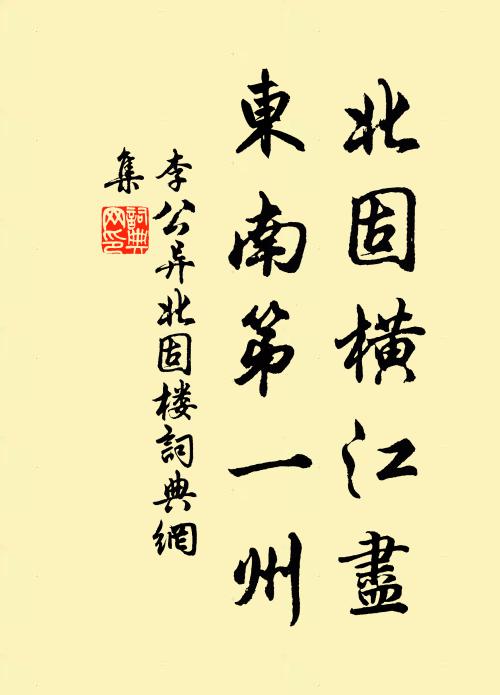 北固橫江盡
東南第一州
李公异北固楼詞典網
集
詞典網印